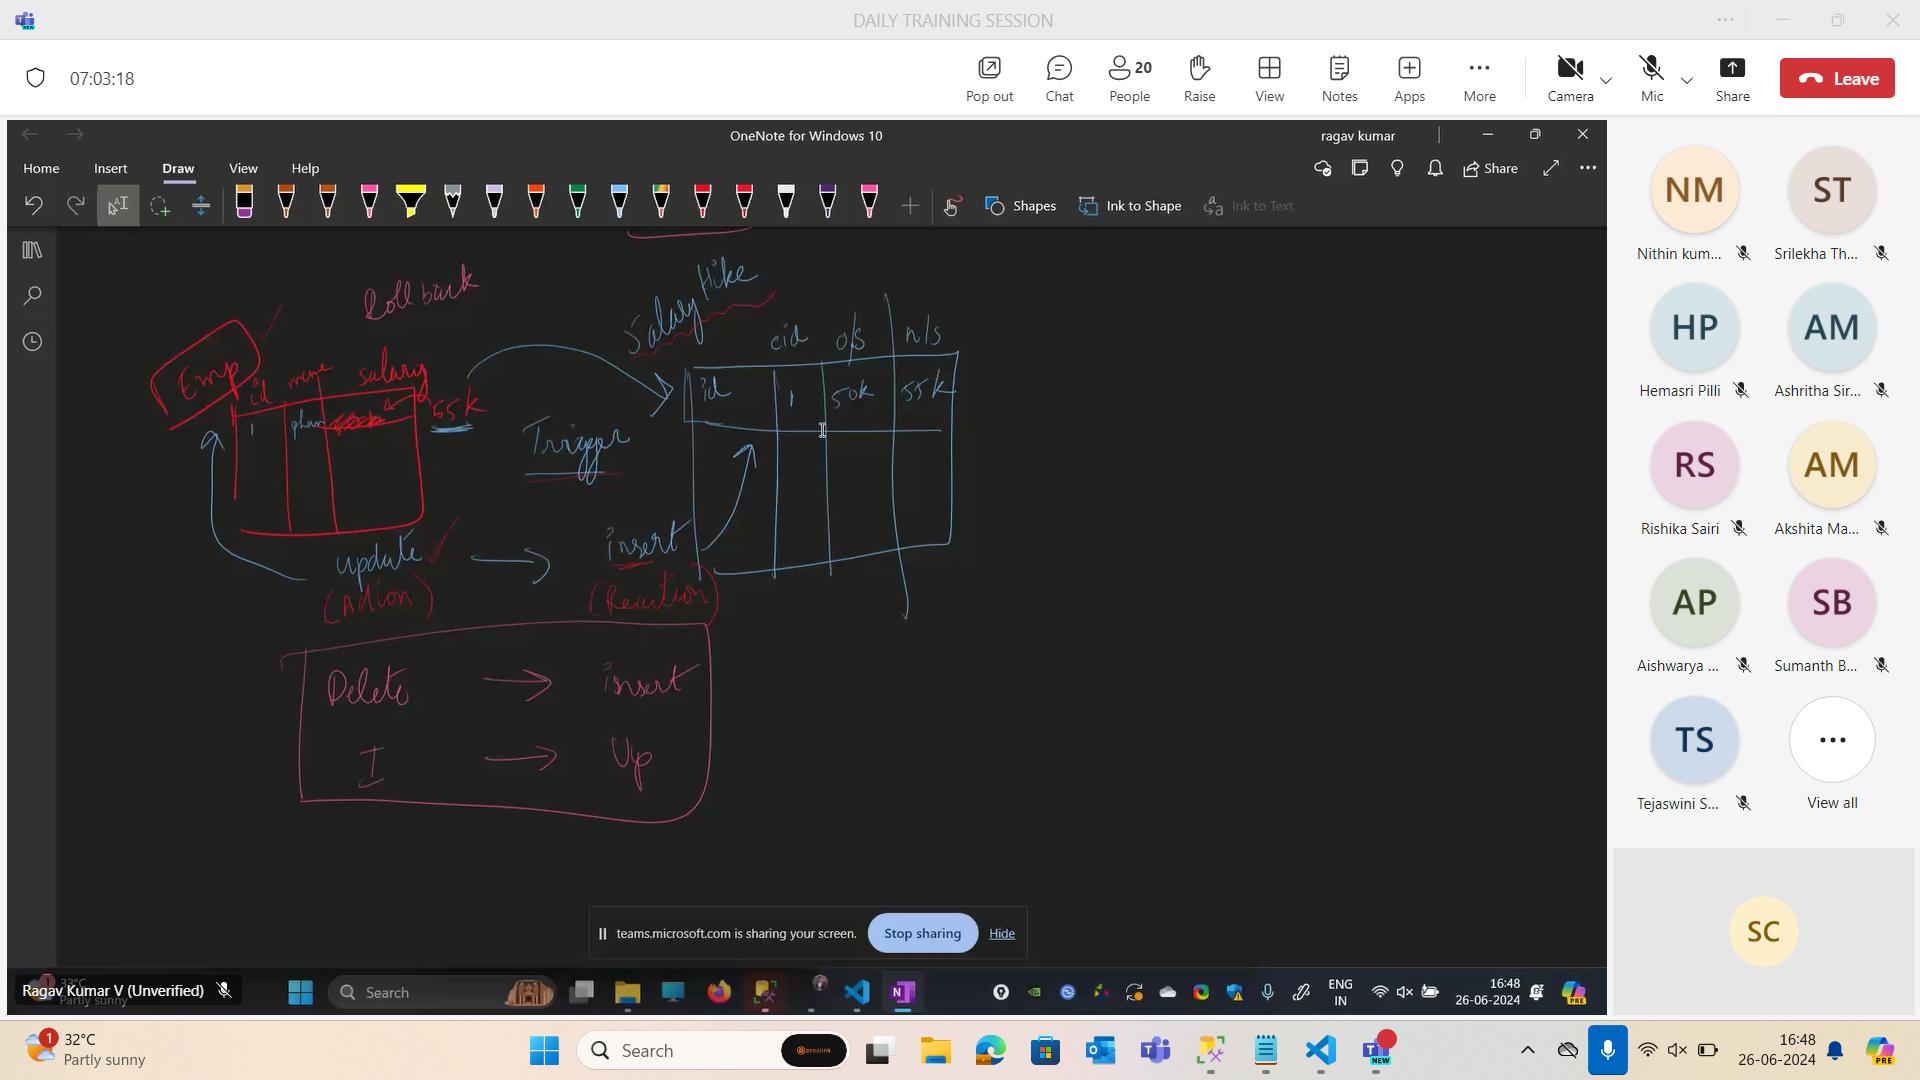 DAILY TRAINING SESSION
07:03:18
Pop out
Chat
20
People
Raise
View
Notes
Apps
More
Camera
Mic
Share
Leave
OneNote for Windows 10
ragav kumar
Home
Insert
Draw
View
Help
Share
Shapes
Ink to Shape
Ink to Text
Roll back
Salary Hike
eid o/s n/s
Emp
id name salary
55k
1
id 1 50k 55k
Trigger
update
insert
(Action)
(Reaction)
Delete
insert
I
Up
teams.microsoft.com is sharing your screen.
Stop sharing
Hide
Ragav Kumar V (Unverified)
32°C
Partly sunny
Search
ENG
IN
16:48
26-06-2024
PRE
NM
Nithin kum...
ST
Srilekha Th...
HP
Hemasri Pilli
AM
Ashritha Sir...
RS
Rishika Sairi
AM
Akshita Ma...
AP
Aishwarya ...
SB
Sumanth B...
TS
Tejaswini S...
View all
SC
1
32°C
Partly sunny
Search
NEW
16:48
26-06-2024
PRE